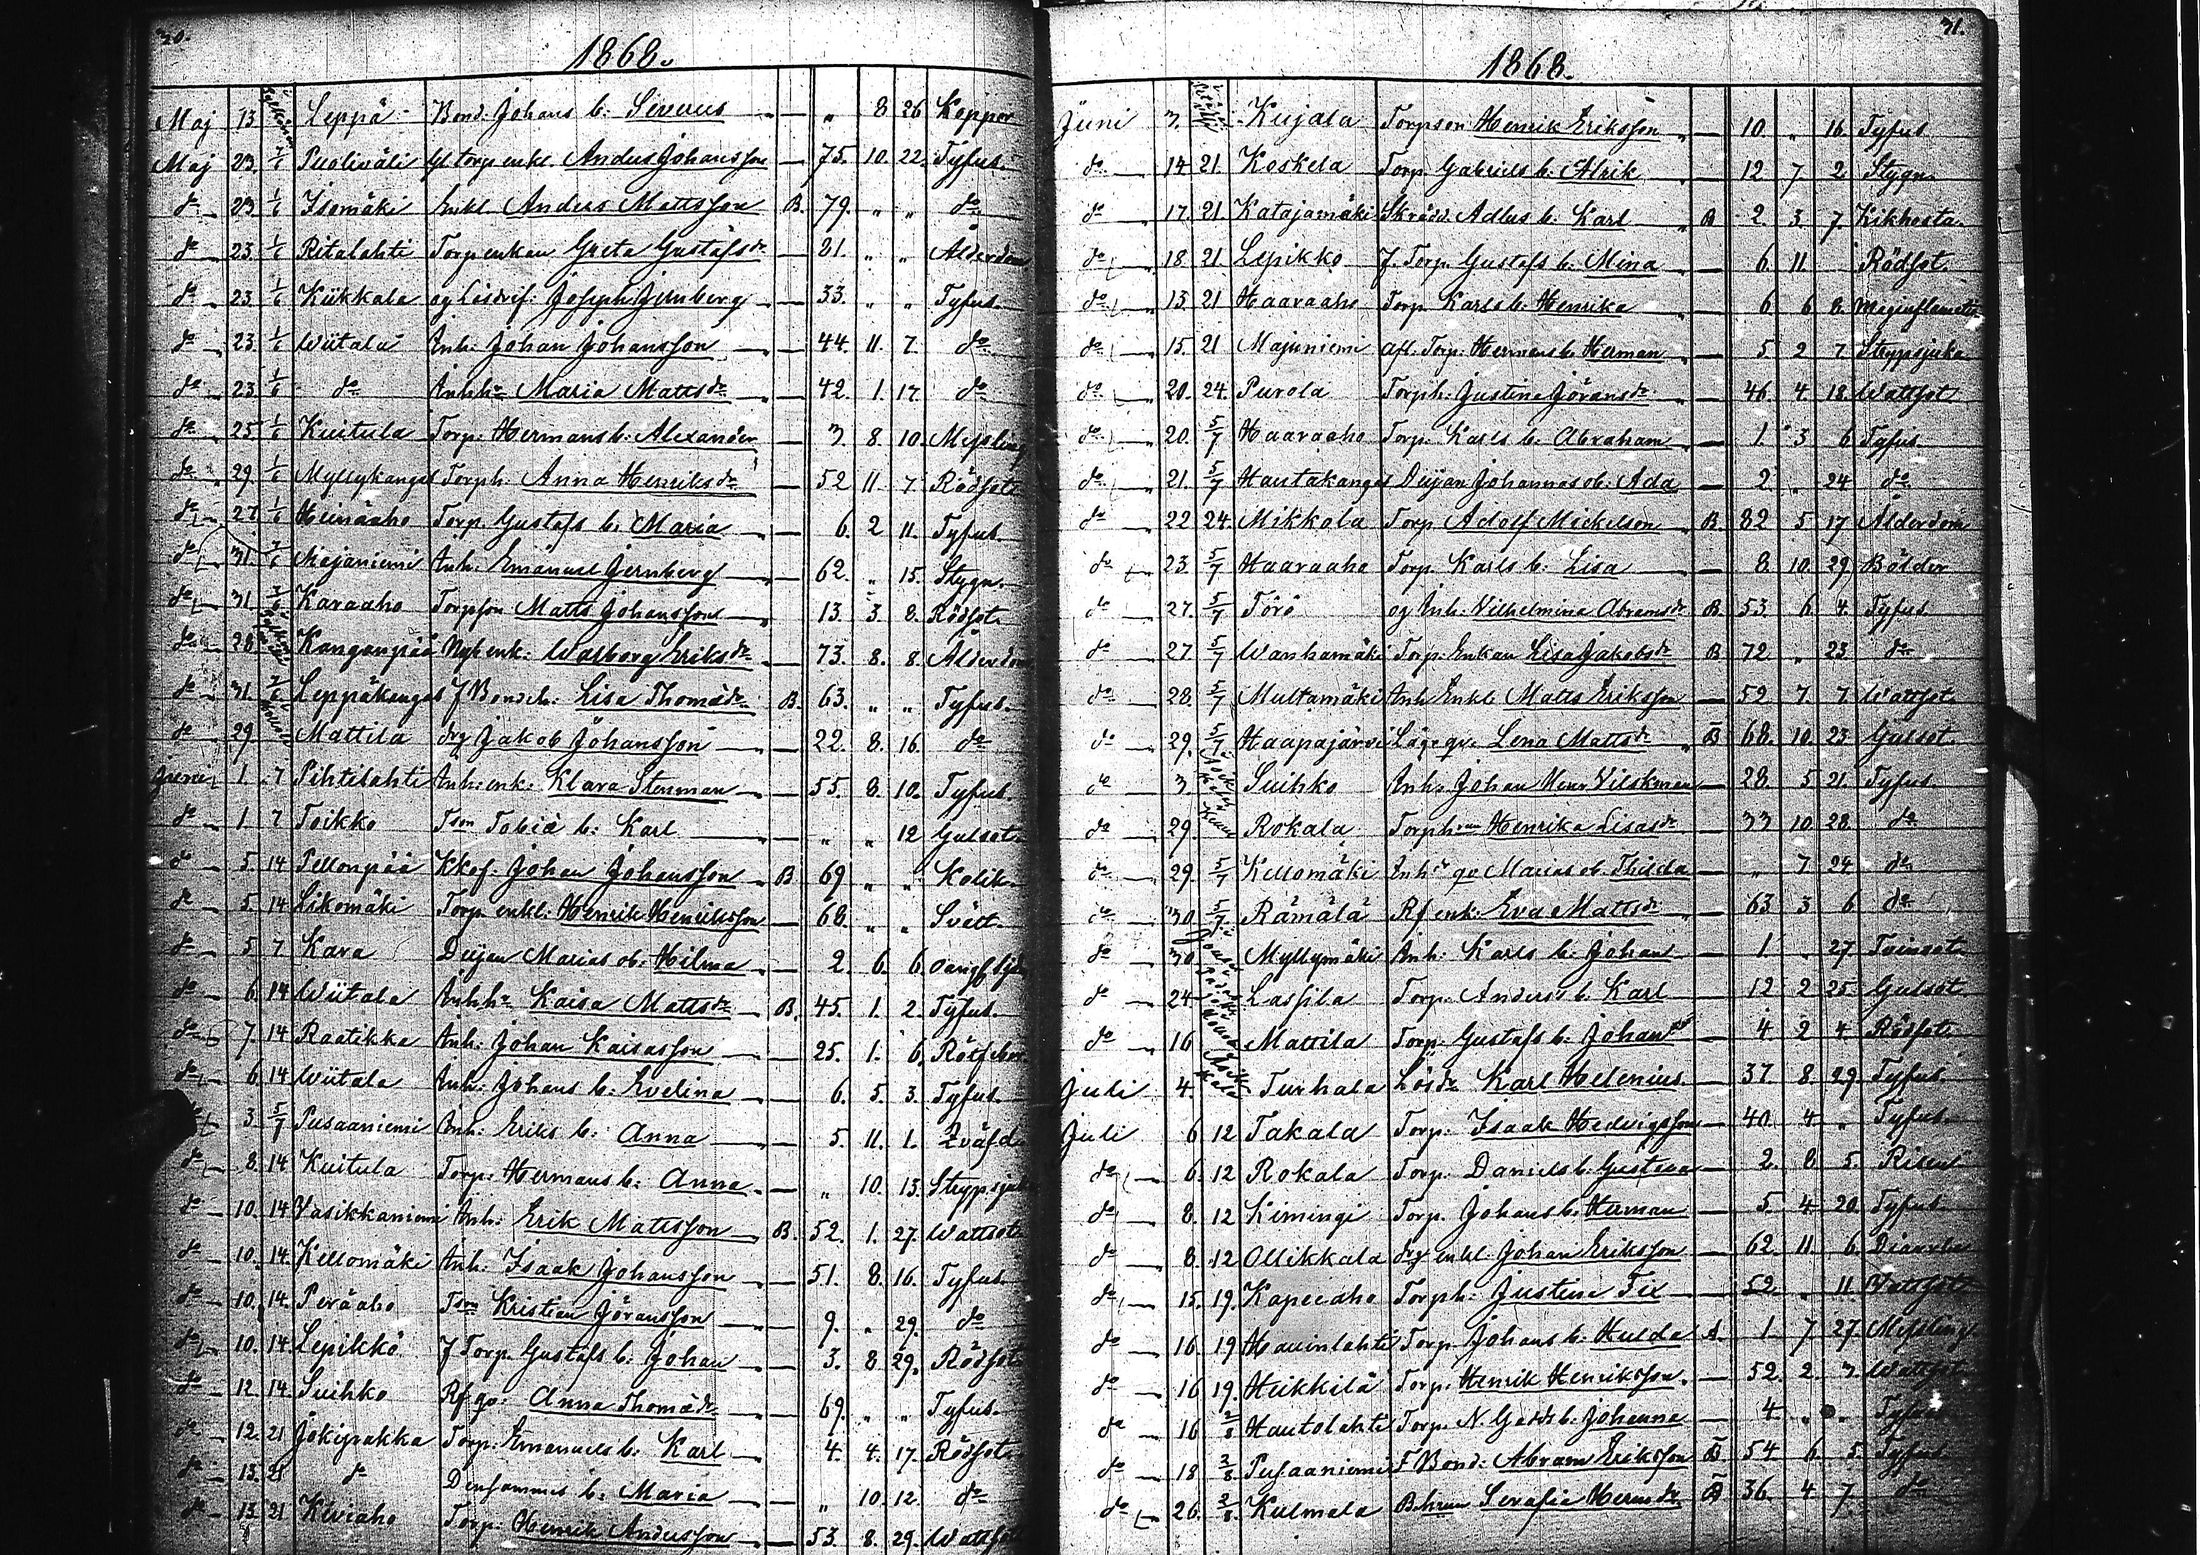 30.
1868.
Maj 13 Leppä Bond. Johans b. Severus — „ 8 26 Koppor
Maj 23. 7/6 Puoliväli Gl torp enkl. Anders Johansson — 75. 10. 22. Tyfus.
do 23 1/6 Isomäki Enkl. Anders Mattsson B. 79. „ „ do
do 23. 1/6 Ritalahti Torp enkan Greta Gustafsdr — 81. „ „ Ålderdom
do 23. 1/6 Kiikkala Joseph Jernberg — 33. „ „ Tyfus.
do 23 1/6 Wiitala Inh. Johan Johansson — 44. 11. 7. do
do 23. 1/6 do Inhhu Maria Mattsdr — 42. 1. 17. do
do 25 1/6 Kuitula Torp. Hermans b. Alexander — 3. 8. 10. Messling
do 29. 1/6 Myllykangas Torph. Anna Henriksdr — 52 11. 7. Rödsot
do 27. 1/6 Heinäaho Torp. Gustafs b. Maria — 6. 2 11. Tyfus
do 31. 7/6 Majaniemi Inh. Emanuel Jernberg — 62. „ 15. Stygn.
do 31 Karaaho Torpson Matts Johansson — 13. 3 8. Rödsot.
do 28 Kanganpää Nyb enk. Walborg Eriksdr — 73. 8. 8. Ålderdom
do 31. Leppäkangas F Bondeh. Lisa Thomasdr B. 63. „ „ Tyfus.
do 29 Mattila drg Jakob Johansson — 22. 8. 16. do
Juni 1. 7 Pihtilahti Inh. enk. Klara Stenman — 55. 8. 10. Tyfus.
do 1. 7 Toikko Tson Tobias b. Karl — „ „ 12 Gulsot.
do 5. 14 Pellonpää Johan Johansson B 69 „ „ Kolik.
do 5. 14 Likomäki Torp. enkl. Henrik Henriksson — 68. „ „ Svält.
do 5 7 Kara Deijan Marias ob. Hilma — 2. 6. 6.
do 6. 14 Wiitala Inhhu Kaisa Mattsdr B. 45. 1. 2. Tyfus.
do 7. 14 Raatikka Inh. Johan Kaisasson — 25. 1. 6 Rötfeber
do 6. 14 Wiitala Inh. Johans b. Evelina — 6. 5. 3. Tyfus.
do 3. 5/7 Pusaaniemi Inh. Eriks b. Anna — 5. 11. 1.
do 8. 14 Kuitula Torp. Hermans b. Anna — „ 10. 13. Strypsjuka
do 10. 14 Vasikkaniemi Inh. Erik Mattsson B. 52. 1. 27. Wattsot
do 10. 14. Kellomäki Inh. Isaak Johansson — 51. 8. 16. Tyfus.
do 10. 14. Peräaho Tson Kristian Göransson — 9. „ 29. do
do 10. 14 Lepikkö F Torp. Gustafs b. Johan — 3. 8 29. Rödsot.
do 12. 14. Suihko Rf qv. Anna Thomasdr — 69. „ „ Tyfus.
do 12. 21 Jokipakka Torp. Emanuels b. Karl — 4. 4. 17. Rödsot.
do 13. 21 do Densammes b. Maria — „ 10. 12. do
do 13. 21 Kiviaho Torp. Henrik Andersson — 53. 8. 29. Wattsot
31.
1868.
Juni 3. Kujala Torpson Henrik Eriksson — 10. „ 16. Tyfus
do 14 21. Koskela Torp. Gabriels b. Alrik — 12 7 2 Stygn.
do 17. 21. Katajamäki Skrädd. Adlus b. Karl B 2 3. 7. Kikhosta.
do 18. 21 Lepikko F. Torp. Gustafs b. Mina — 6. 11. Rödsot.
do 13. 21 Haaraaho Torp. Karls b. Henrika — 6 6 8.
do 15. 21 Majaniemi afl. Torp. Hermans b. Herman — 5 2 7 Strypsjuka
do 20. 24. Purola Torph. Justina Göransdr — 46 4 18. Wattsot
do 20. 5/7 Haaraaho Torp. Karls b. Abraham — 1. 3 6 Tyfus.
do 21. 5/7 Hautakangas Deijan Johannas ob. Ada — 2. „ 24 do
do 22 24. Mikkola Torp. Adolf Mickelson B. 82 5 17 Ålderdom
do 23. 5/7 Haaraaho Torp. Karls b. Lisa — 8. 10. 29. Bölder
do 27. 5/7 Törö og Inh. Vilhelmina Abramsdr B. 53. 6 4. Tyfus
do 27. 5/7 Wanhamäki Torp. Enkan Lisa Jakobsdr B 72. „ 23. do
do 28. 5/7 Multamäki Inh Enkl. Matts Eriksson — 52 7. 7. Wattsot.
do 29. 5/7 Haapajärvi Lena Mattsdr B 68. 10. 23 Gulsot.
do 3 Suihko Inh. Johan Henr Vilskman — 28. 5 21. Tyfus.
do 29. Rokala Torph Henrika Lisasdr — 33 10 28. do
do 29. 5/7 Kellomäki Inh. qv Marias ob. Thilda — „ 7 24 do
do 30 5/7 Rämälä Rf enk. Eva Mattsdr — 63 3 6 do
do 30 Myllymäki Inh. Karls b. Johan — 1. „ 27. Tvinsot.
do 24 Lassila Torp. Anders b. Karl — 12 2 25. Gulsot
do 16 Mattila Torp. Gustafs b. Johan — 4. 2 4. Rödsot
Juli 4. Turhala Karl Helenius — 37. 8 29. Tyfus.
Juli 6 12 Takala Torp. Isaak Hedvigsson — 40. 4 „ Tyfus.
do 6. 12 Rokala Torp. Daniels b. Gustava — 2. 8 5. Risen
do 8. 12 Kimingi Torp. Johans b. Herman — 5. 4 20. Tyfus
do 8. 12 Ollikkala drg enkl. Johan Eriksson — 62. 11 6. Diarrhe
do 15. 19. Kapeeaho Torph. Justina Fix — 52. „ 11. Wattsot
do 16. 19 Hauinlahti Torp. Johans b. Hulda A. 1 7 27. Messling
do 16 19. Heikkilä Torp. Henrik Henriksson — 52. 2 3. Wattsot
do 16 2/8 Hautolahti Torp. N. Johanna — 4. „ „ Tyfus
do 18 2/8 Pusaaniemi F Bond. Abram Eriksson B 54 6 5. Tyfus
do 26. 2/8 Kulmala Serafia Hermdr B 36. 4 7. do